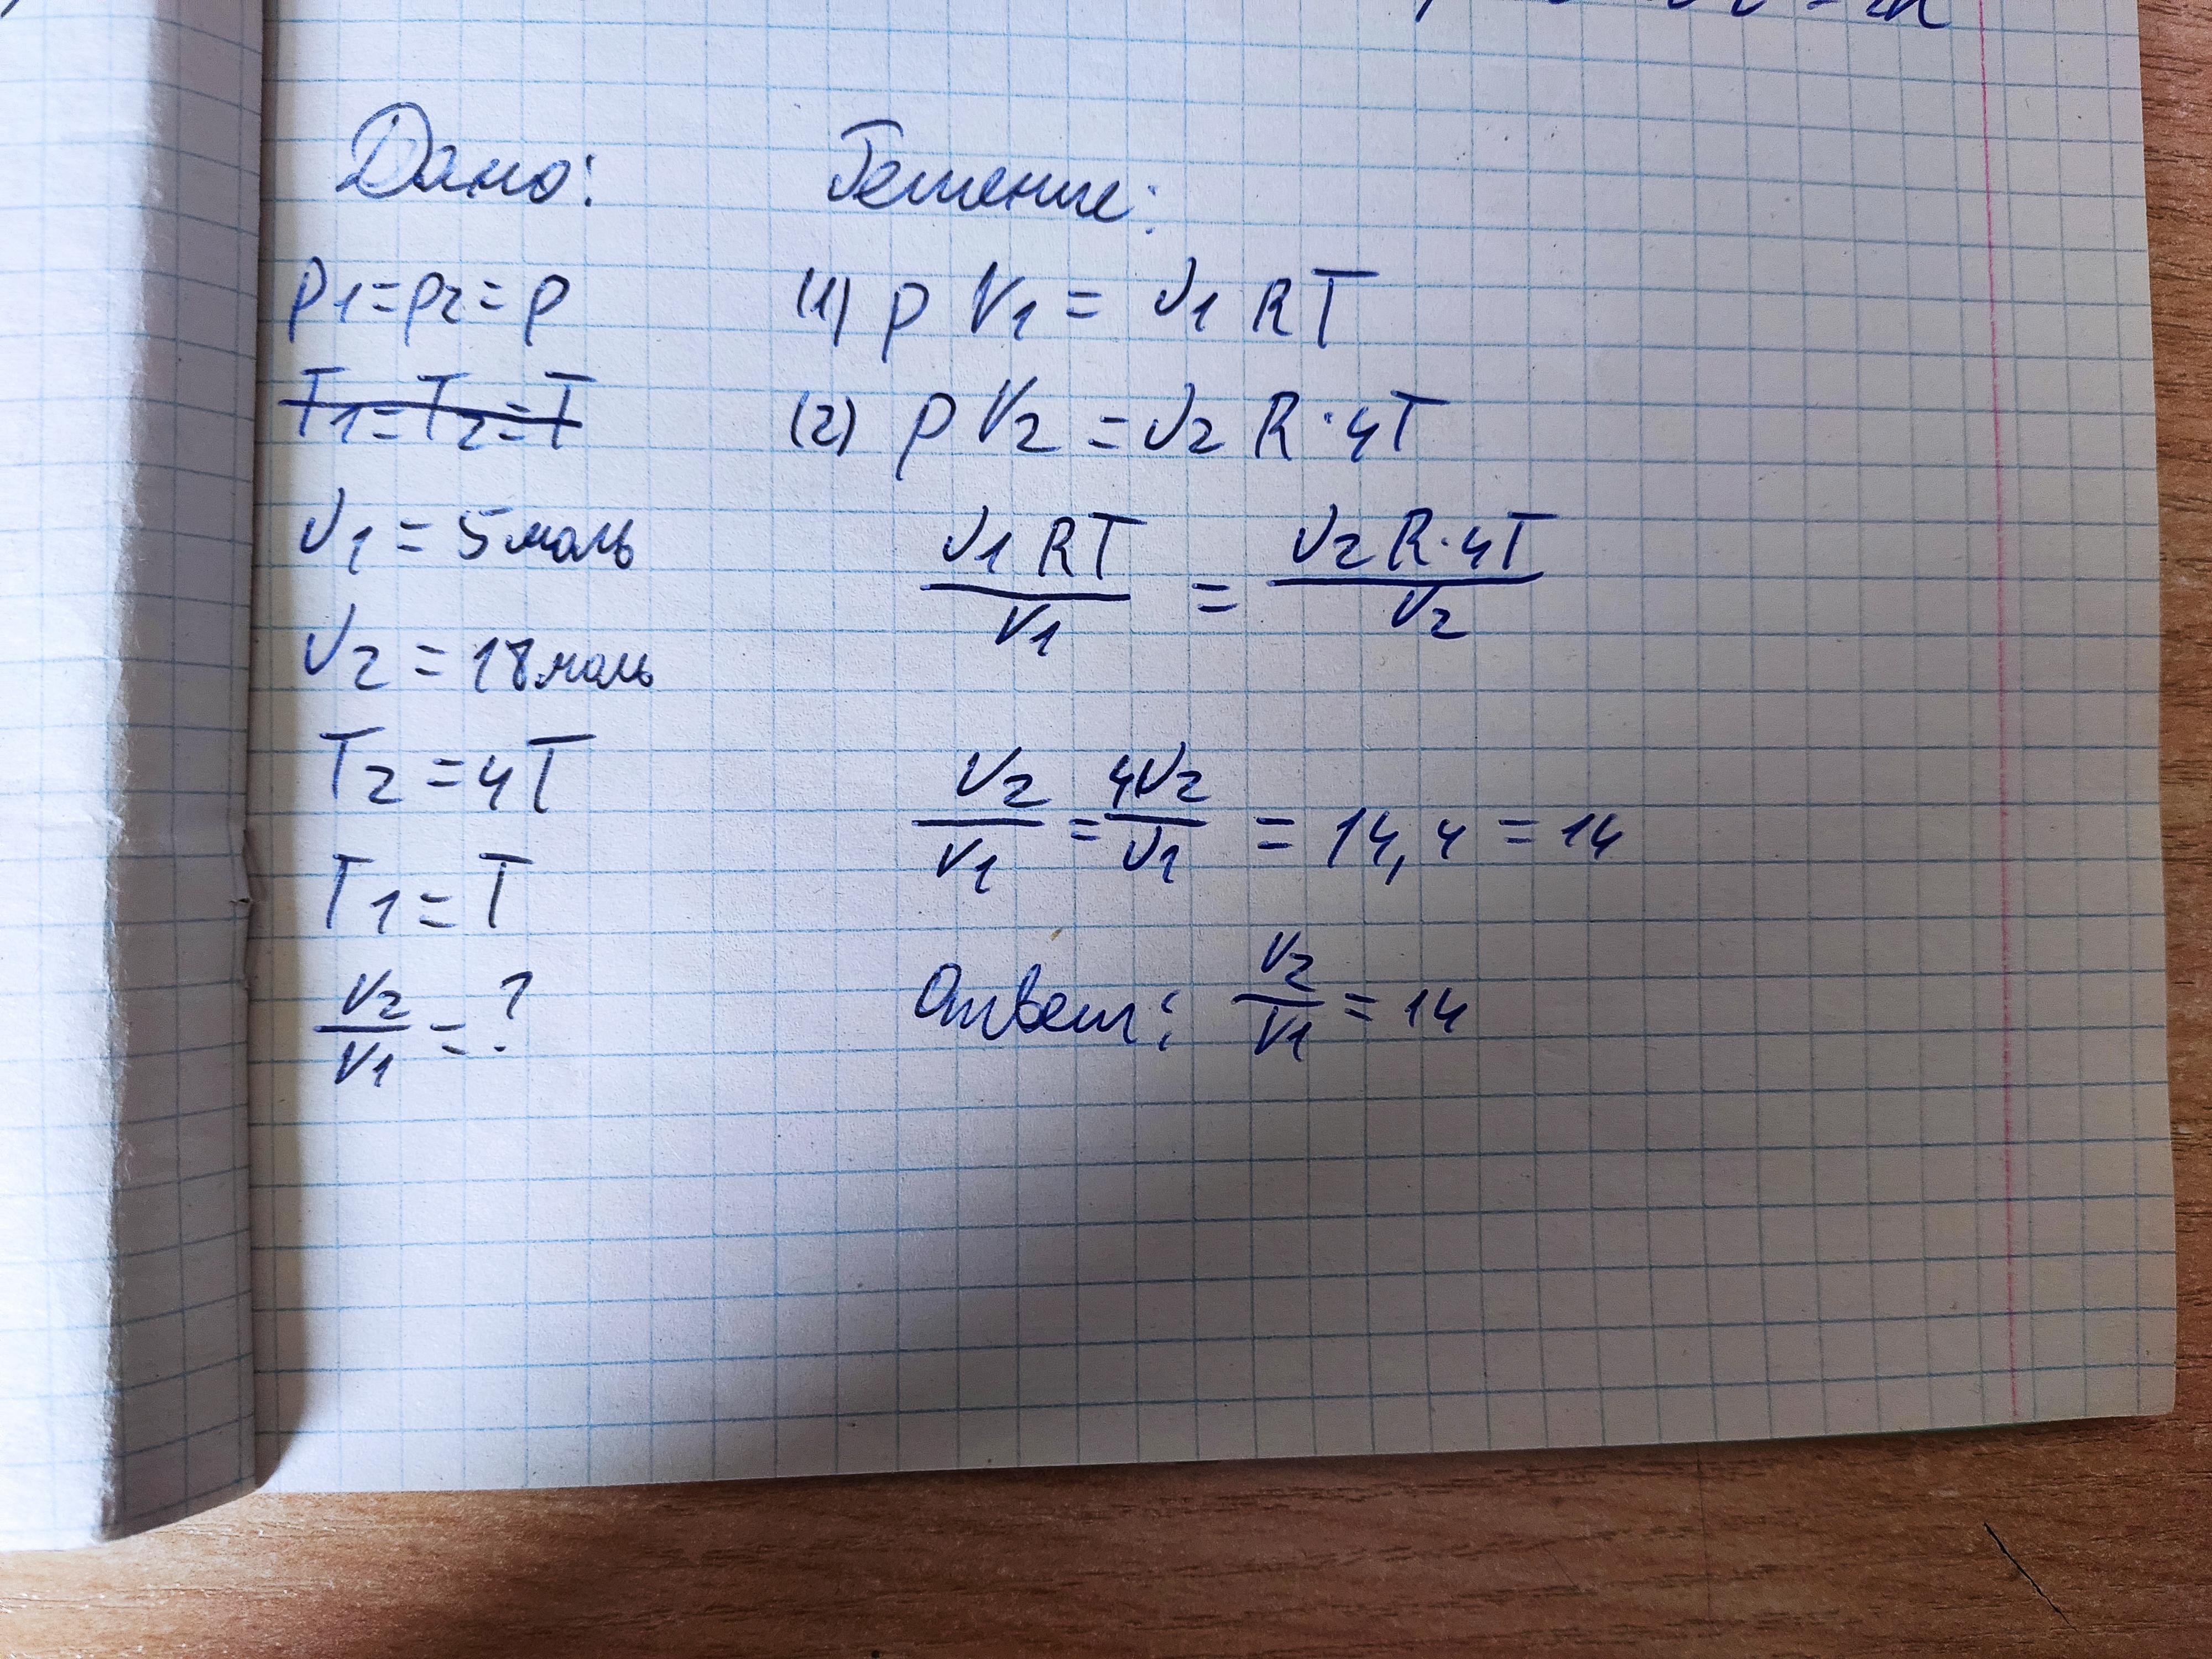 Дано:
p1=p2=p
T1=T2=T
ν1 = 5 моль
ν2 = 18 моль
T2 = 4T
T1 = T
V2/V1 = ?
Решение:
(1) p V1 = ν1 RT
(2) p V2 = ν2 R·4T
ν1 RT/V1 = ν2 R·4T/V2
V2/V1 = 4ν2/ν1 = 14,4 = 14
Ответ: V2/V1 = 14